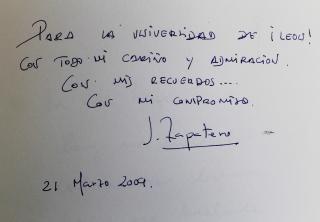 PARA LA UNIVERSIDAD DE ¡LEON!
CON TODO MI CARIÑO Y ADMIRACION.
CON MIS RECUERDOS....
CON MI COMPROMISO.
J. Zapatero
21 Marzo 2009.